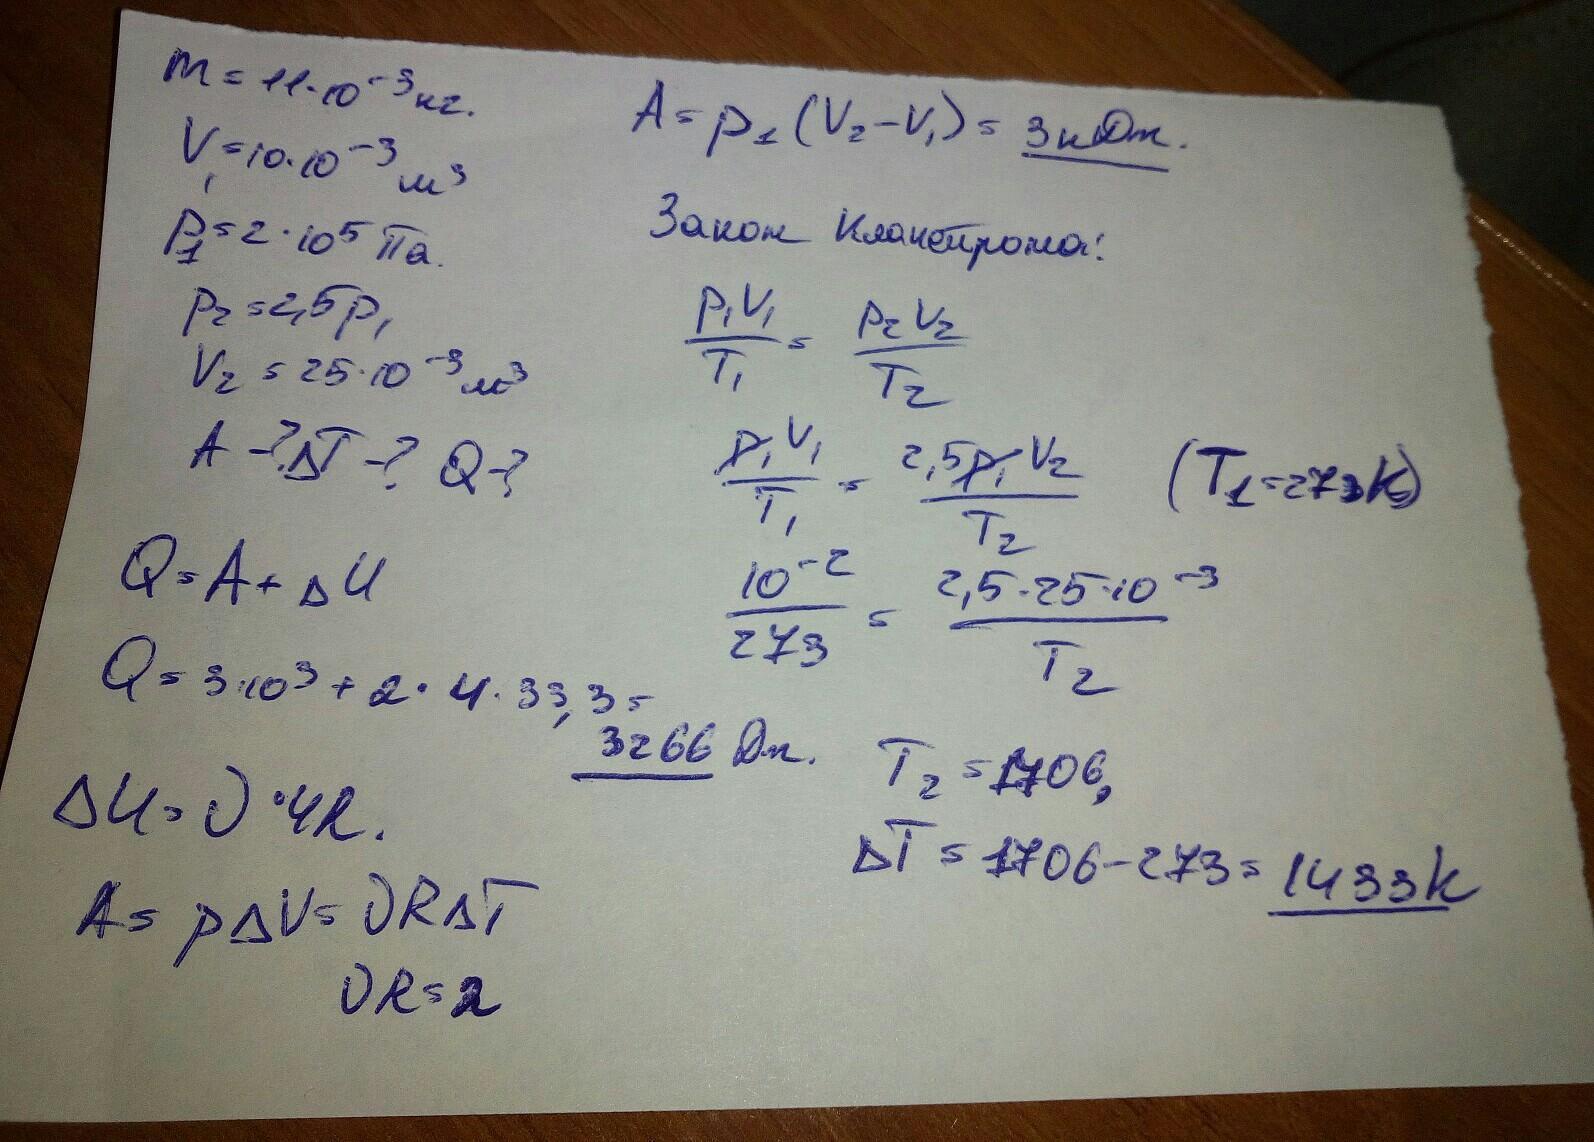 m = 11·10⁻³ кг.
V₁ = 10·10⁻³ м³
p₁ = 2·10⁵ Па.
p₂ = 2,5p₁
V₂ = 25·10⁻³ м³
A -? ΔT -? Q -?
Q = A + ΔU
Q = 3·10³ + 2·4·33,3 =
3266 Дж.
ΔU = ν·4R.
A = pΔV = νRΔT
νR = 2
A = p₁(V₂ - V₁) = 3кДж.
Закон Клапейрона:
p₁V₁/T₁ = p₂V₂/T₂
p₁V₁/T₁ = 2,5p₁V₂/T₂ (T₁ = 273K)
10⁻²/273 = 2,5·25·10⁻³/T₂
T₂ = 1706,
ΔT = 1706 - 273 = 1433K